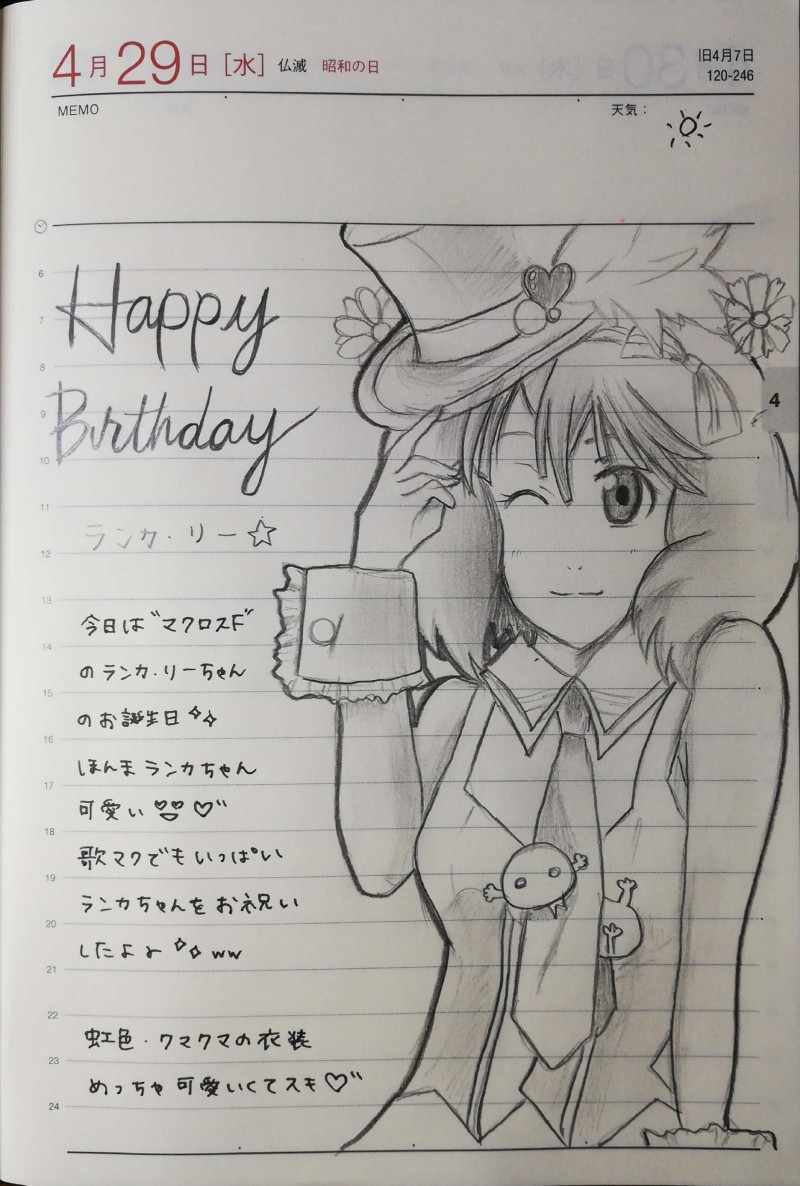 4月29日［水］ 仏滅 昭和の日
旧4月7日
120-246
MEMO
天気：
6
7
8
9
10
11
12
13
14
15
16
17
18
19
20
21
22
23
24
4
Happy
Birthday
ランカ・リー☆
今日は"マクロスF"
のランカ・リーちゃん
のお誕生日
ほんまランカちゃん
可愛い♡"
歌マクでもいっぱい
ランカちゃんをお祝い
したよよww
虹色・クマクマの衣装
めっちゃ可愛いくてスキ♡"